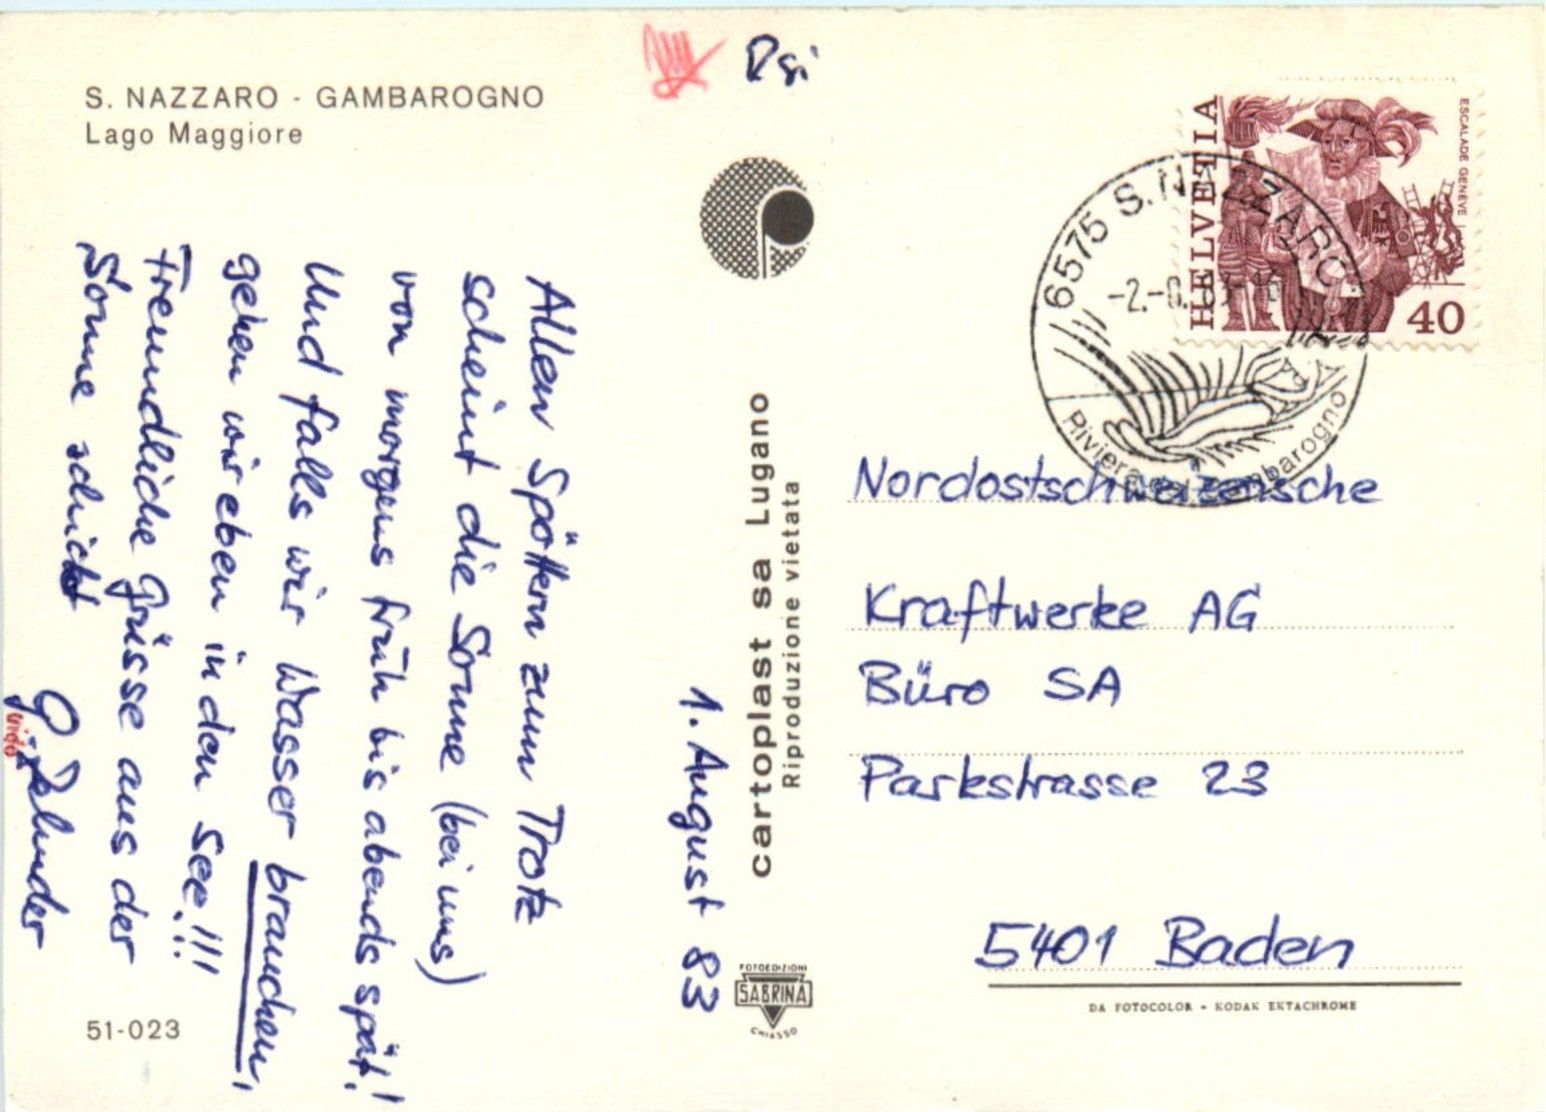 S. NAZZARO - GAMBAROGNO
Lago Maggiore
1. August 83
Allen Spöttern zum Trotz
scheint die Sonne (bei uns)
von morgens früh bis abends spät!
Und falls wir Wasser brauchen,
gehen wir eben in den See!!!
Freundliche Grüsse aus der
Sonne schickt
51-023
cartoplast sa Lugano
Riproduzione vietata
FOTOEDIZIONI
SABRINA
CHIASSO
HELVETIA
ESCALADE GENEVE
40
6575 S. NAZZARO
Riviera del Gambarogno
Nordostschweizerische
Kraftwerke AG
Büro SA
Parkstrasse 23
5401 Baden
DA FOTOCOLOR - KODAK EKTACHROME